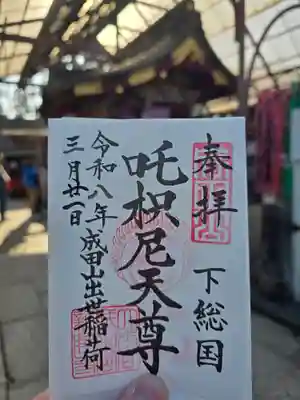 奉拝
下総国
吒枳尼天尊
成田山出世稲荷
令和八年
三月廿一日